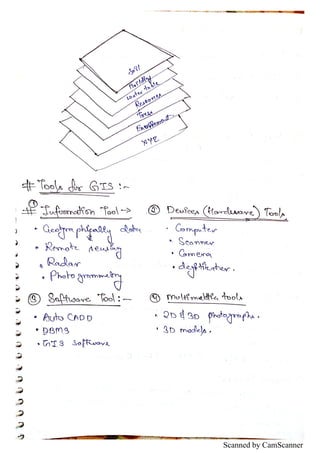 Soil
Building
water table
Resources
Trees
Environment
XYZ
# Tools for GIS :-
① # Information Tool ->
• Geographically data
• Remote sensing
• Radar
• Photogrammetry
② Devices (Hardware) Tools
• Computer
• Scanner
• Camera
• degitizer.
③ Software Tool :-
• Auto CADD
• DBMS
• GIS Software
④ multimedia tools
• 2D & 3D photographs.
• 3D models.
Scanned by CamScanner